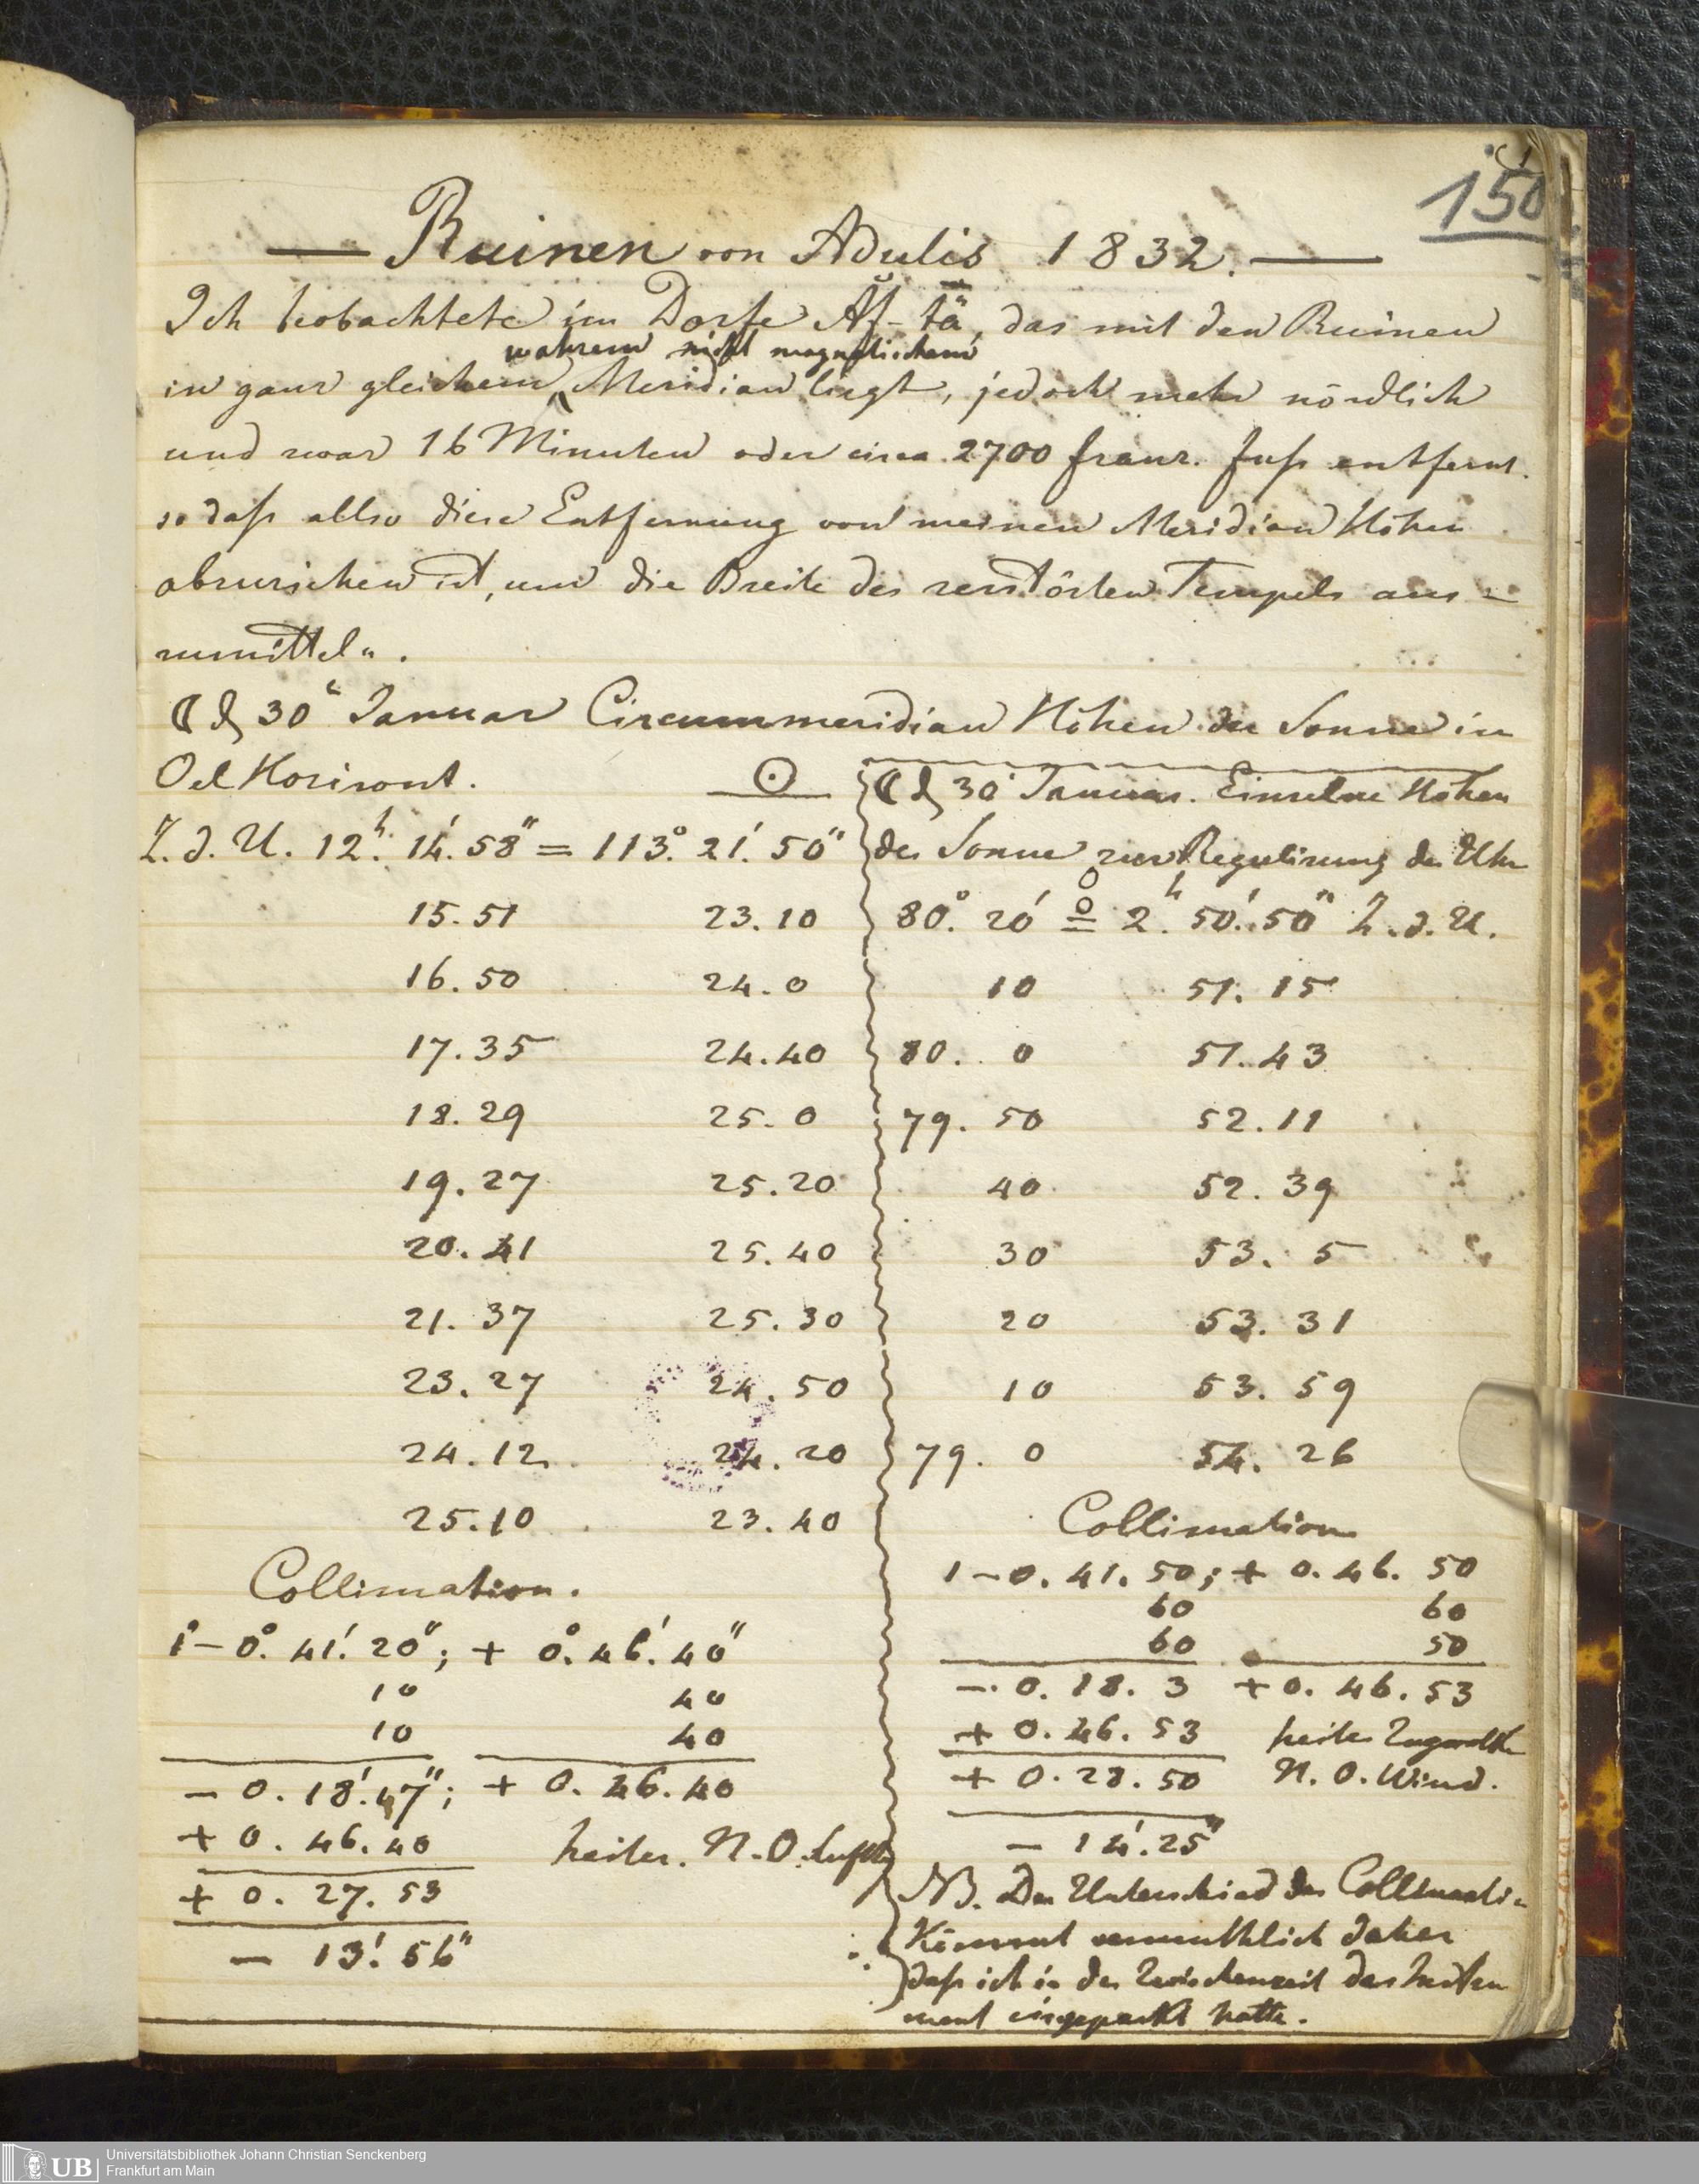 150
— Ruinen von Adulis 1832. —
Ich beobachtete im Dorfe Af-tä, das mit den Ruinen
wahrem nicht magnetischem
in ganz gleichem Meridian liegt, jedoch mehr nördlich
und zwar 16 Minuten oder circa 2700 franz. Fuß entfernt.
so daß allso diese Entfernung von meinen Meridian Höhen
abzuziehen ist, um die Breite des zerstörten Tempels aus=
zumitteln.
☾ d. 30ᵗ Januar Circummeridian Höhen der Sonne im
Oel Horizont. ☉
Z. d. U. 12ʰ. 14'. 58" = 113°. 21'. 50"
15. 51 23. 10
16. 50 24. 0
17. 35 24. 40
18. 29 25. 0
19. 27 25. 20
20. 41 25. 40
21. 37 25. 30
23. 27 24. 50
24. 12 24. 20
25. 10 23. 40
Collimation.
1° - 0°. 41'. 20"; + 0°. 46'. 40"
10 40
10 40
- 0. 18'. 47"; + 0. 46. 40
+ 0. 46. 40 heiter. N.O. Luft
+ 0. 27. 53
- 13'. 56"
☾ d. 30ᵗ Januar. Einzelne Höhen
der Sonne zur Regulirung der Uhr
80°. 20' = 2ʰ. 50'. 50" Z. d. U.
10 51. 15
80. 0 51. 43
79. 50 52. 11
40 52. 39
30 53. 5
20 53. 31
10 53. 59
79. 0 54. 26
Collimation
1 - 0. 41. 50; + 0. 46. 50
60 60
60 50
- 0. 18. 3 + 0. 46. 53
+ 0. 46. 53 heiter
+ 0. 28. 50 N. O. Wind.
- 14'. 25"
NB. Der Unterschied der Collimati
kömmt vermuthlich daher
daß ich in der Zwischenzeit das Instru
ment eingepackt hatte.
UB Universitätsbibliothek Johann Christian Senckenberg
Frankfurt am Main